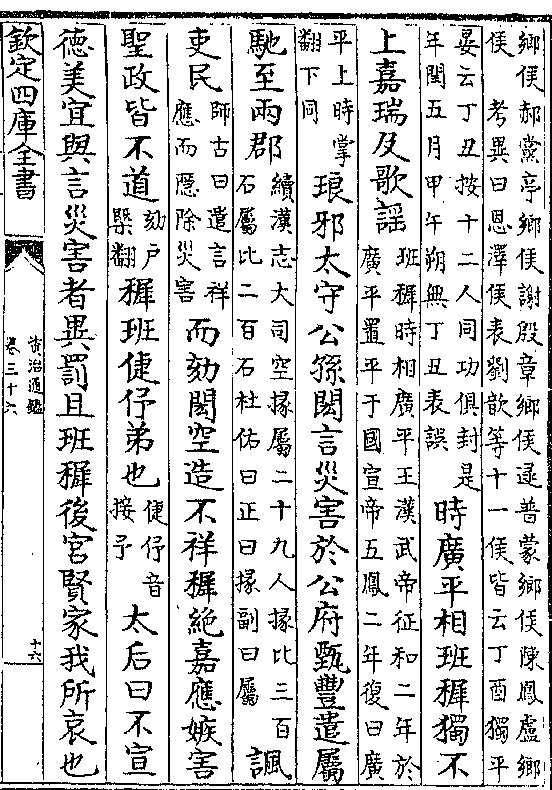 鄉侯郝黨亭鄉侯謝殷章鄉侯逯普蒙鄉侯陳鳳盧鄉
侯　考異曰恩澤侯表劉歆等十一侯皆云丁酉獨平
晏云丁丑按十二人同功俱封是
年閏五月甲午朔無丁丑表誤
時廣平相班穉獨不
上嘉瑞及歌謡
班穉時相廣平王漢武帝征和二年於
廣平置平于國宣帝五鳳二年復曰廣
平上時掌
翻下同
琅邪太守公孫閎言災害於公府甄豐遣屬
馳至兩郡
續漢志大司空掾屬二十九人掾比三百
石屬比二百石杜佑曰正曰掾副曰屬
諷
吏民
師古曰遣言祥
應而隱除災害
而劾閎空造不祥穉絶嘉應嫉害
聖政皆不道
劾户
槩翻
穉班倢伃弟也
倢伃音
接予
太后曰不宣
德美宜與言災害者異罰且班穉後宮賢家我所哀也
欽定四庫全書
資治通鑑
卷三十六
十六